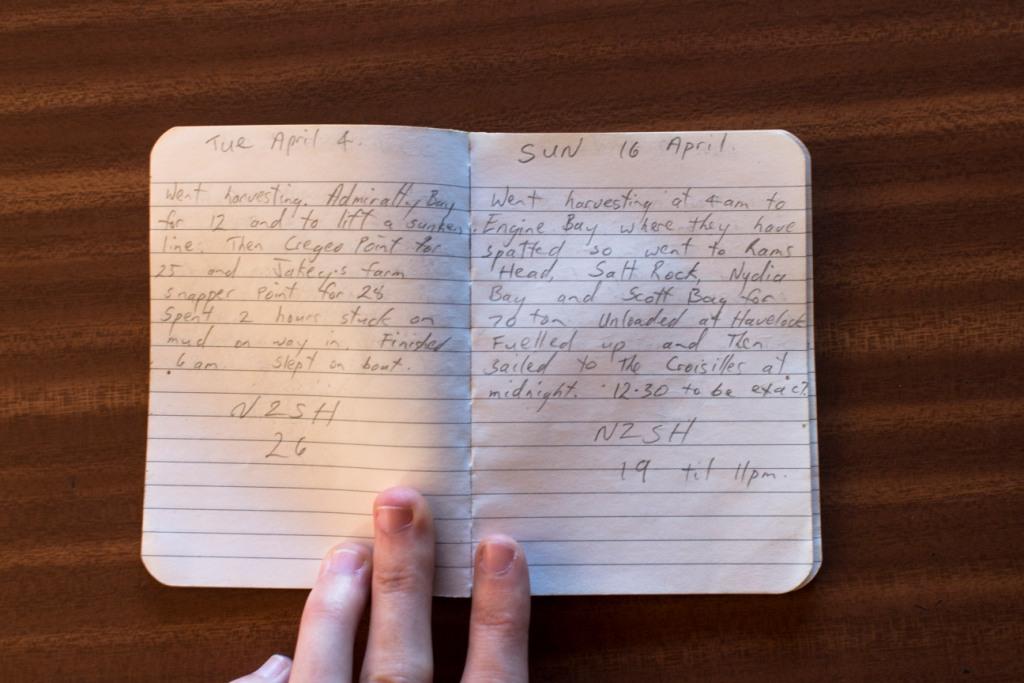 Tue April 4.
Went harvesting. Admiralty Bay
for 12 and to lift a sunken
line. Then Cregeo Point for
25 and Jakey's farm
snapper point for 28
Spent 2 hours stuck on
mud on way in. Finished
6am. Slept on boat.
NZSH
26
SUN 16 April.
Went harvesting at 4am to
Engine Bay where they have
spatted so went to Rams
Head, Salt Rock, Nydia
Bay and Scott Bay for
70 ton Unloaded at Havelock
Fuelled up and Then
sailed to The Croisilles at
midnight. 12.30 to be exact.
NZSH
19 til 11pm.